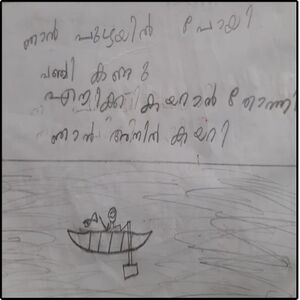 ഞാൻ പുഴയിൽ പോയി
വഞ്ചി കണ്ടു
എനിക്ക് കയറാൻ തോന്നി
ഞാൻ അതിൽ കയറി